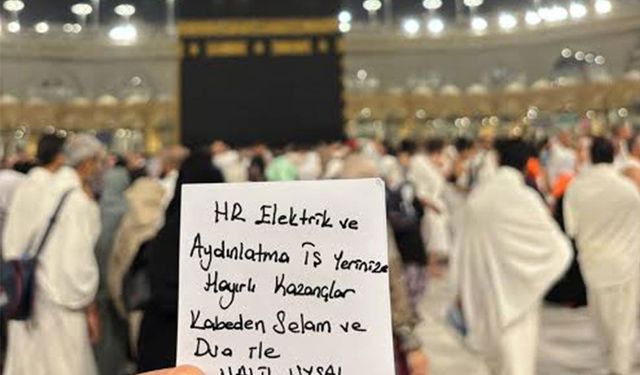 HR Elektrik ve
Aydınlatma İş Yerinize
Hayırlı Kazançlar
Kabeden Selam ve
Dua ile
HALİL UYSAL